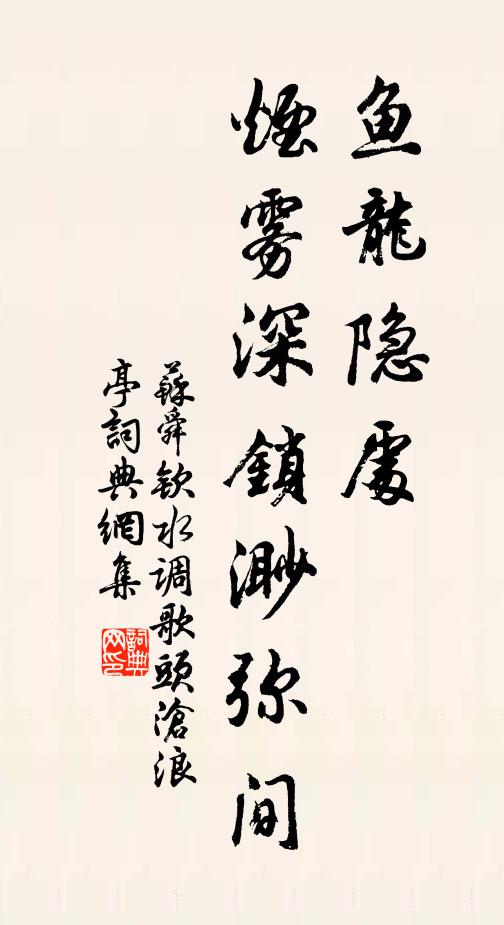 鱼龍隐處
煙雾深鎖渺弥间
蘇舜钦水调歌頭滄浪
亭詞典網集
詞典网印